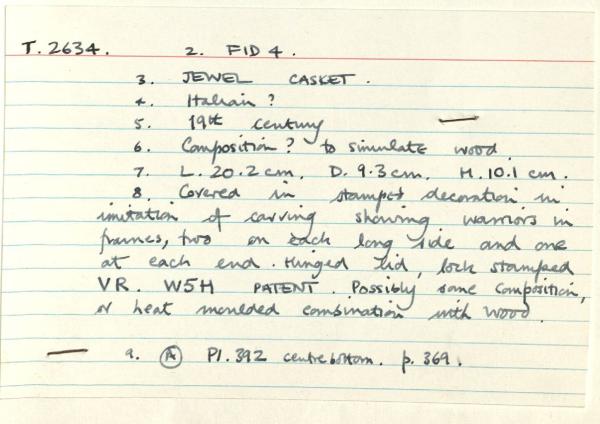 T.2634. 2. FID 4.
3. JEWEL CASKET.
4. Italian?
5. 19th century
6. Composition? to simulate wood.
7. L. 20.2 cm. D. 9.3 cm. H. 10.1 cm.
8. Covered in stamped decoration in
imitation of carving showing warriors in
frames, two on each long side and one
at each end. Hinged lid, lock stamped
VR. W5H PATENT. Possibly some composition,
or heat moulded combination with wood.
9. (A) Pl. 392 centre bottom. p. 369.